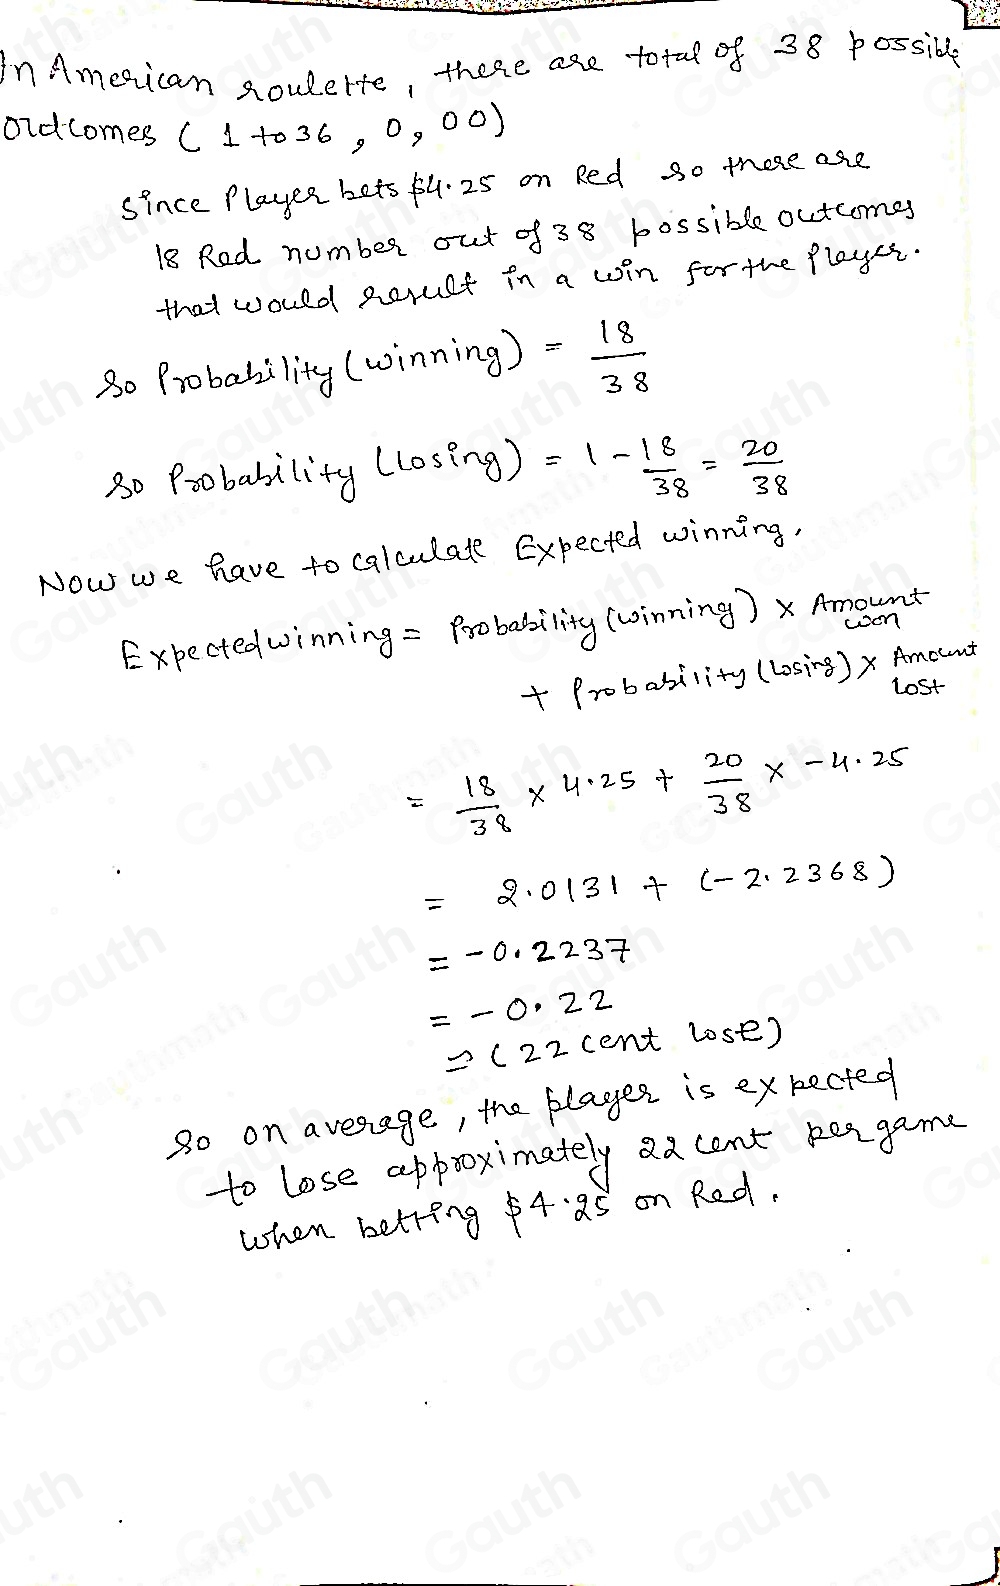 In American roulette, there are total of 38 possible
outcomes (1 to 36, 0, 00)
since Player bets $4.25 on Red so there are
18 Red number out of 38 possible outcomes
that would result in a win for the player.
So Probability (winning) = 18/38
So Probability (losing) = 1 - 18/38 = 20/38
Now we have to calculate Expected winning.
Expected winning = Probability (winning) x Amount won
+ Probability (losing) x Amount Lost
= 18/38 x 4.25 + 20/38 x -4.25
= 2.0131 + (-2.2368)
= -0.2237
= -0.22
= (22 cent lose)
So on average, the player is expected
to lose approximately 22 cent per game
when betting $4.25 on Red.